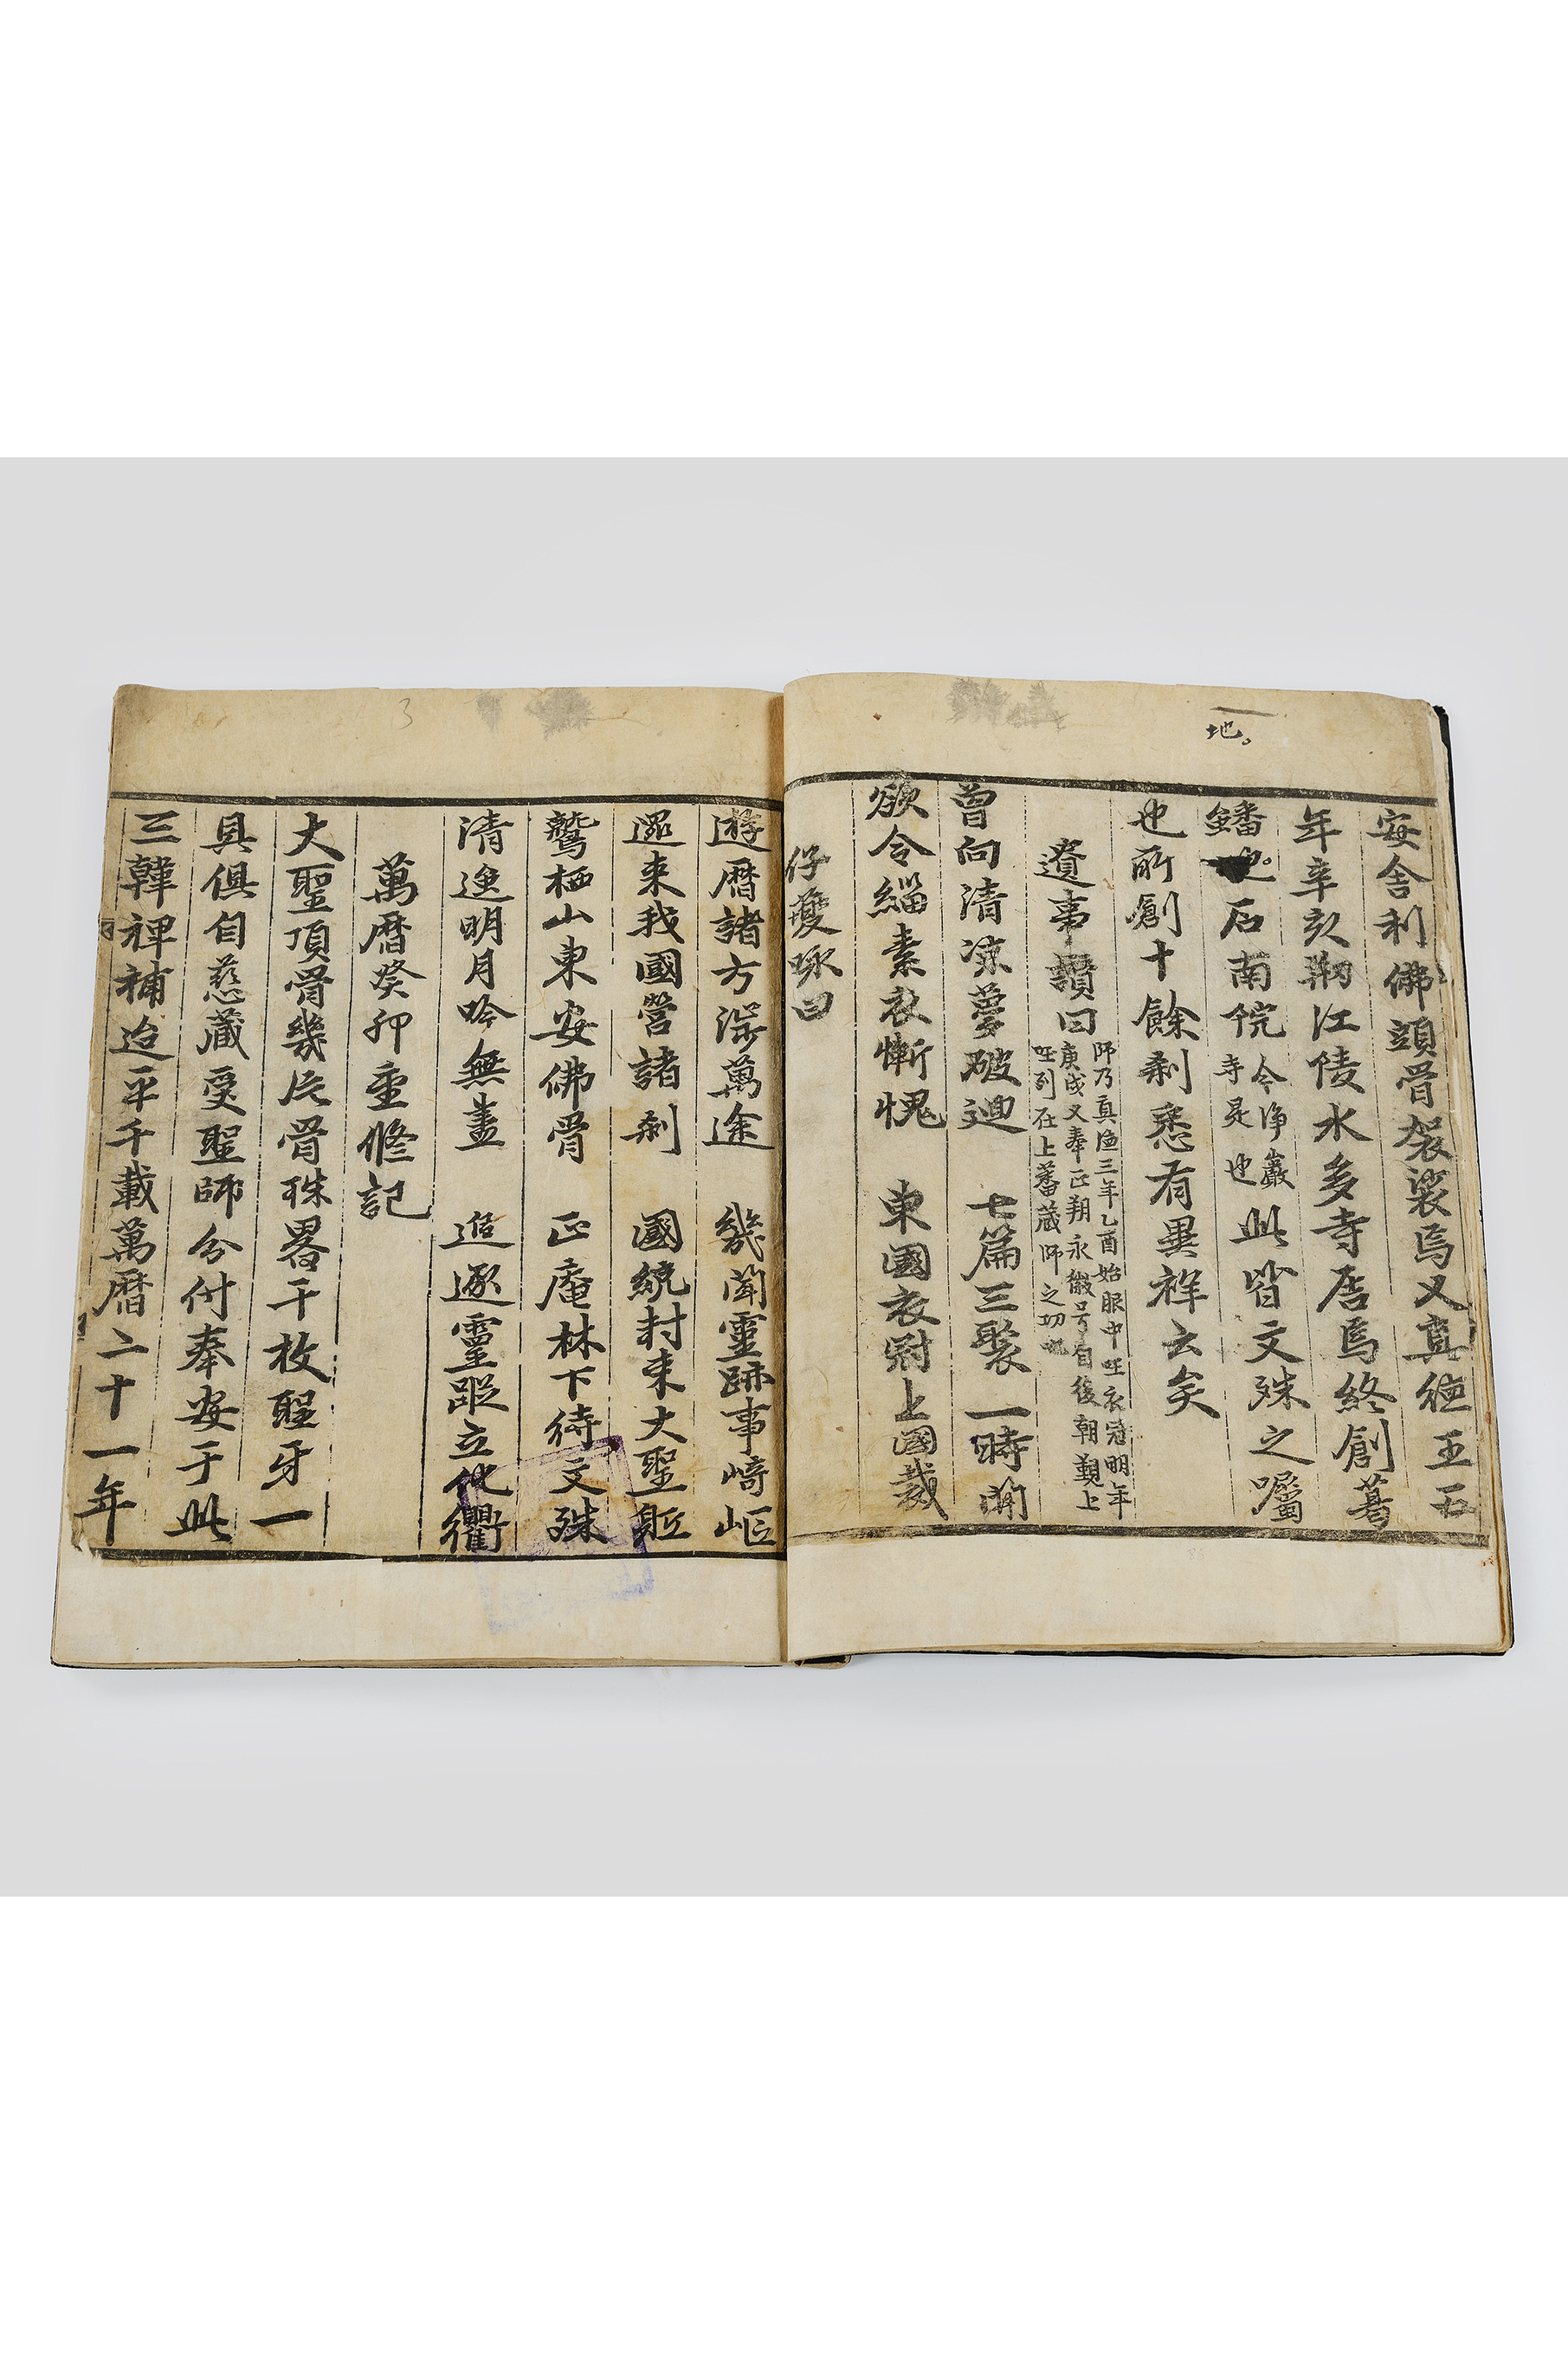 地
安舍利佛頭骨袈裟焉又真德王五
年辛亥剏江陵水多寺居焉終創葛
蟠地石南院今淨巖寺是也此皆文殊之囑
也所創十餘刹悉有異祥云矣
遺事讚曰師乃真德三年乙酉始服中国衣冠明年庚戌又奉正朔永徽号自後朝覲上国列在上蕃藏師之功也
曾向清凉夢破迴 七篇三聚一時開
欲令緇素衣慚愧 東國衣冠上國裁
仔夔琢曰
遊曆諸方涉萬途 幾聞靈跡事崎嶇
還来我國營諸刹 國統封来大聖軀
鷲栖山東安佛骨 正庵林下待文殊
清風明月吟無盡 追逐靈蹤立化衢
萬曆癸卯重修記
大聖頂骨幾片骨珠畧干枚聖牙一
具俱自慈藏受聖師分付奉安于此
三韓裨補迨乎千載萬曆二十一年